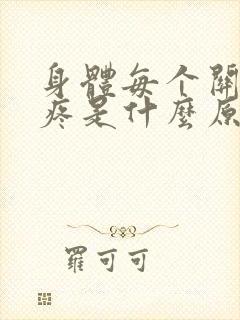 身體每个關
疼是什麼原
羅可可